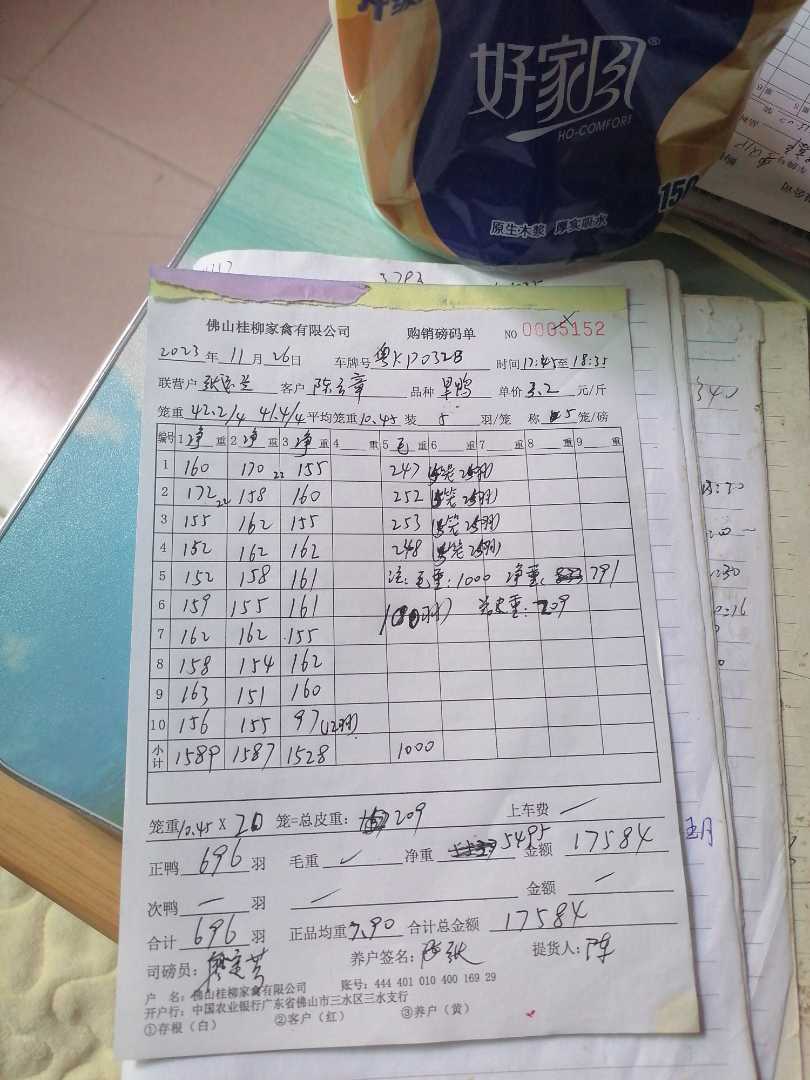 好家风®
HO-COMFORT
原生木浆 厚实吸水
150
3793
佛山桂柳家禽有限公司 购销磅码单 NO 0005152
2023年11月26日 车牌号 粤XP032B 时间17:45至18:35
联营户 客户 陈 章 品种 旱鸭 单价3.2元/斤
笼重42.2/4 41.4/4 平均笼重10.45 装5羽/笼 称5笼/磅
编号 1净重 2净重 3净重 4重 5毛重 6重 7重 8重 9重
1 160 170 22 155 247 (5笼25羽)
2 172 22 158 160 252 (5笼25羽)
3 155 162 155 253 (5笼25羽)
4 152 162 162 248 (5笼25羽)
5 152 158 161 注:毛重:1000 净重: 791
6 159 155 161 (100羽) 总皮重:209
7 162 162 155
8 158 154 162
9 163 151 160
10 156 155 97(12羽)
小计 1589 1587 1528 1000
笼重10.45×20笼=总皮重: 209 上车费
正鸭696羽 毛重 净重 5495 金额17584
次鸭 羽 金额
合计696羽 正品均重7.90 合计总金额17584
司磅员: 养户签名: 张 提货人:陈
户 名:佛山桂柳家禽有限公司 账号:444 401 010 400 169 29
开户行:中国农业银行广东省佛山市三水区三水支行
①存根(白) ②客户(红) ③养户(黄)